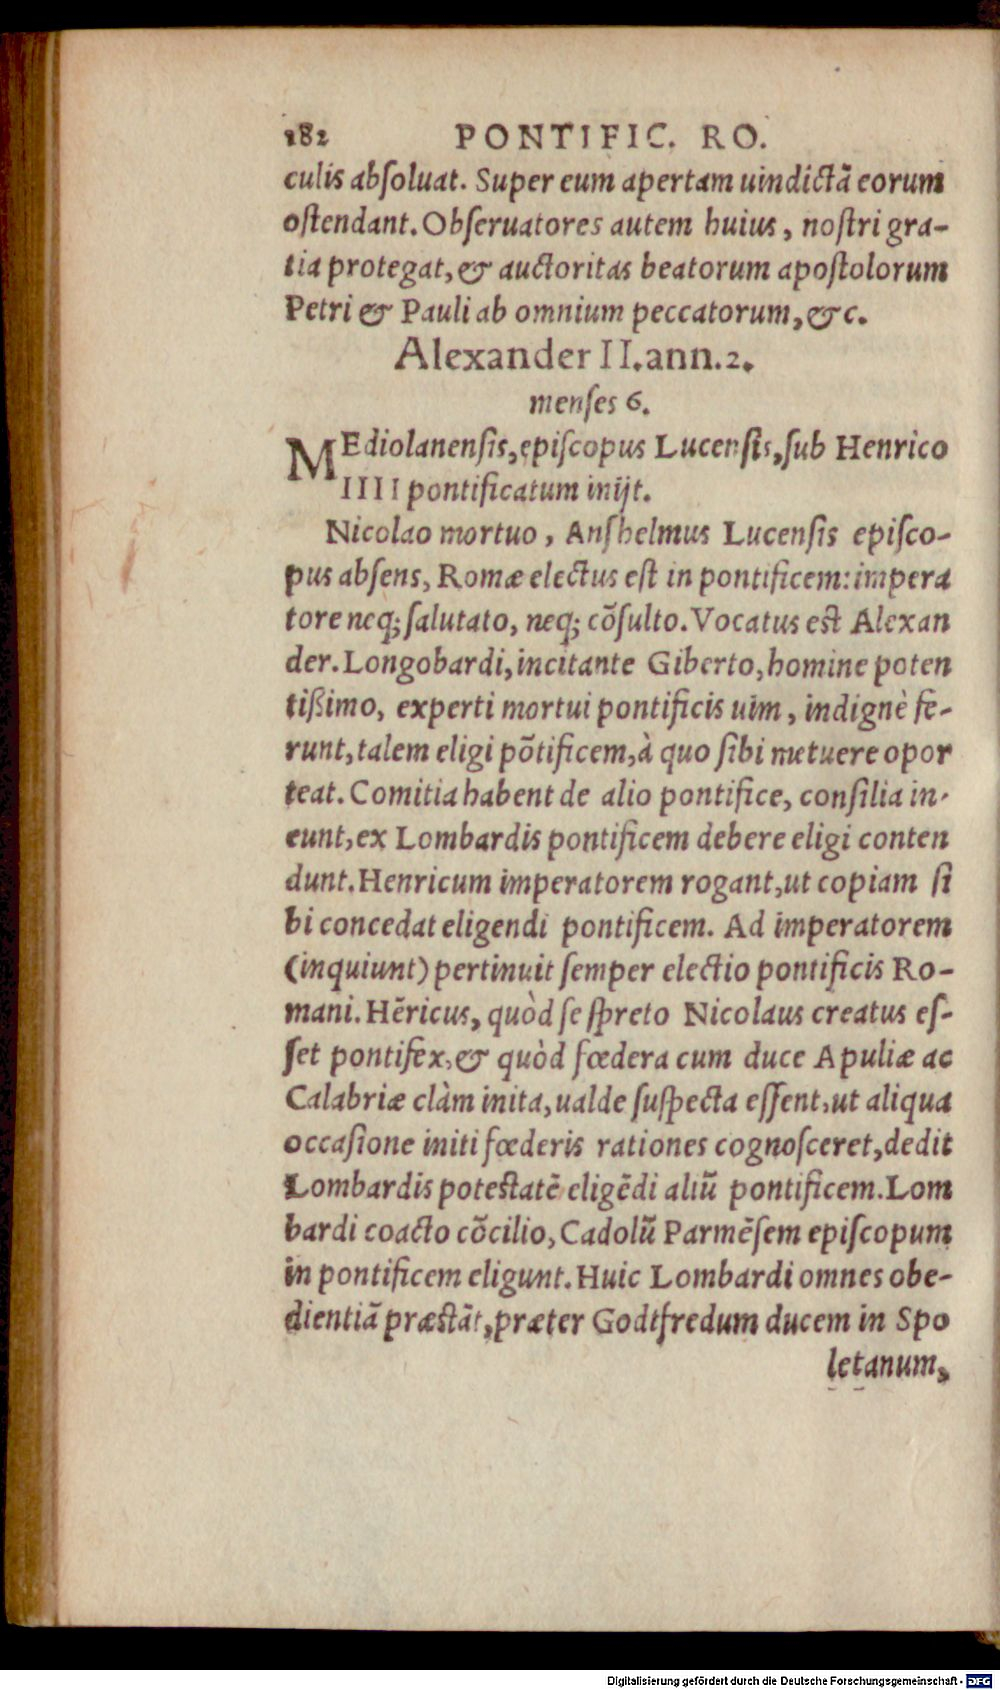 182 PONTIFIC. RO.
culis absoluat. Super eum apertam uindictā eorum
ostendant. Obseruatores autem huius, nostri gra-
tia protegat, & auctoritas beatorum apostolorum
Petri & Pauli ab omnium peccatorum, &c.
Alexander II. ann. 2.
menses 6.
MEdiolanensis, episcopus Lucensis, sub Henrico
IIII pontificatum inijt.
Nicolao mortuo, Anshelmus Lucensis episco-
pus absens, Romæ electus est in pontificem: impera
tore neq; salutato, neq; cōsulto. Vocatus est Alexan
der. Longobardi, incitante Giberto, homine poten
tißimo, experti mortui pontificis uim, indignè fe-
runt, talem eligi pōtificem, à quo sibi metuere opor
teat. Comitia habent de alio pontifice, consilia in-
eunt, ex Lombardis pontificem debere eligi conten
dunt. Henricum imperatorem rogant, ut copiam si
bi concedat eligendi pontificem. Ad imperatorem
(inquiunt) pertinuit semper electio pontificis Ro-
mani. Hēricus, quòd se spreto Nicolaus creatus es-
set pontifex, & quòd fœdera cum duce Apuliæ ac
Calabriæ clàm inita, ualde suspecta essent, ut aliqua
occasione initi fœderis rationes cognosceret, dedit
Lombardis potestatē eligēdi aliū pontificem. Lom
bardi coacto cōcilio, Cadolū Parmēsem episcopum
in pontificem eligunt. Huic Lombardi omnes obe-
dientiā præstāt, præter Godtfredum ducem in Spo
letanum,
Digitalisierung gefördert durch die Deutsche Forschungsgemeinschaft - DFG